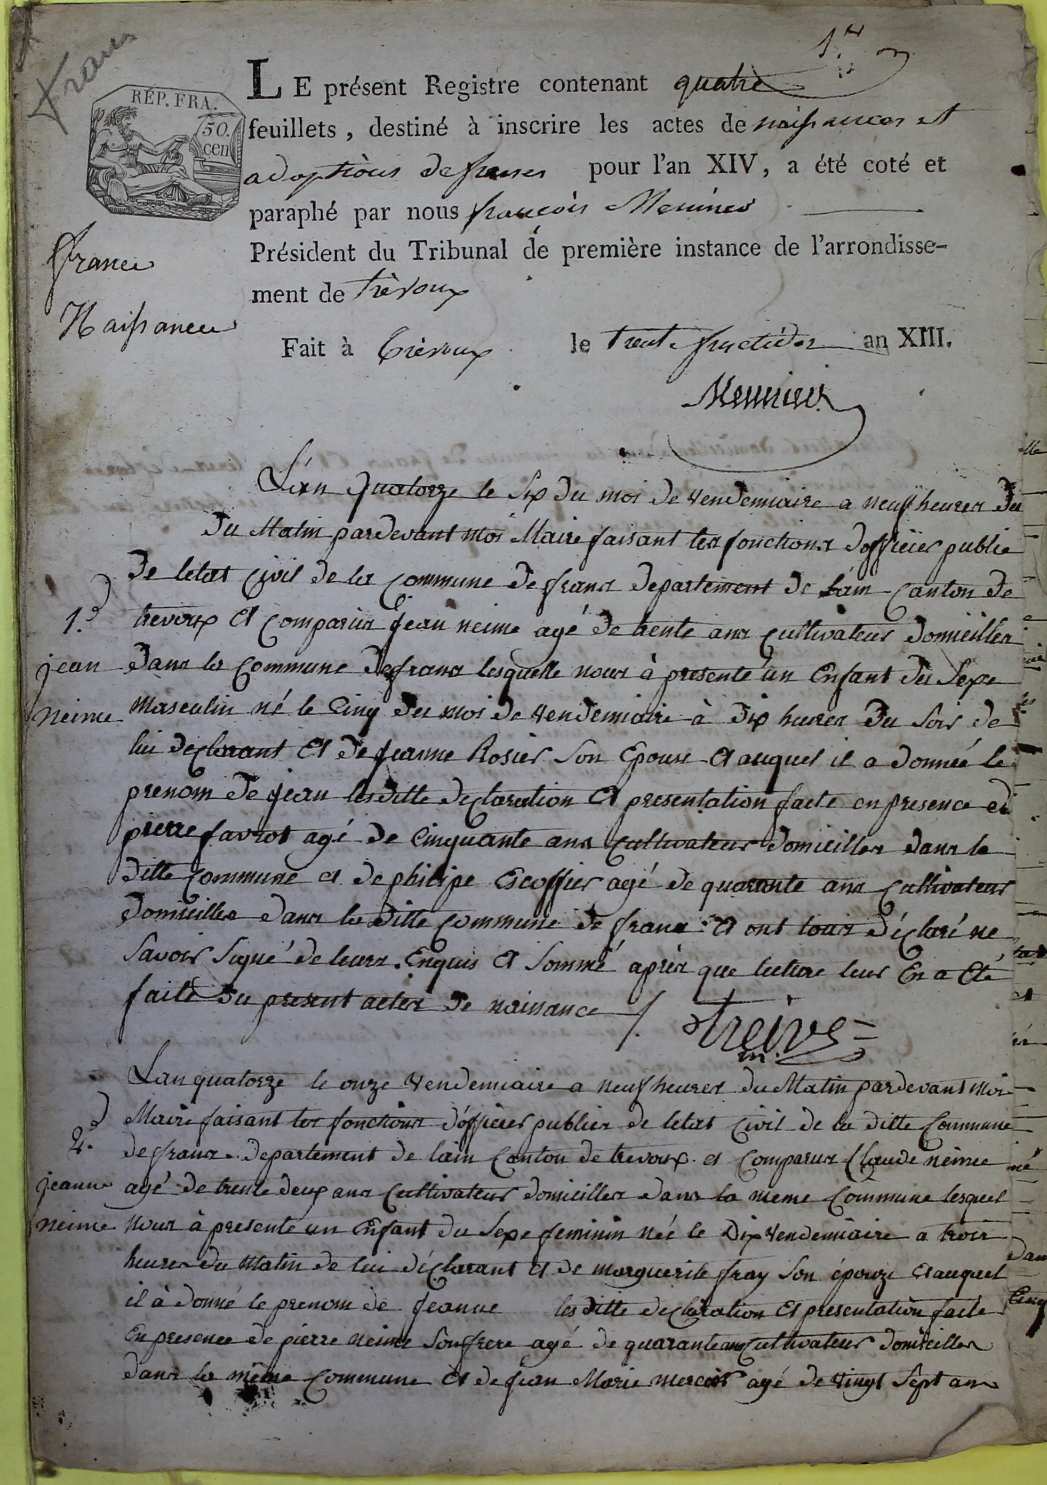 frans
1er
RÉP. FRA.
50.
cen
LE présent Registre contenant quatre
feuillets, destiné à inscrire les actes de naissances et
adoptions de frans pour l'an XIV, a été coté et
paraphé par nous françois Meunier
Président du Tribunal de première instance de l'arrondisse-
ment de trévoux
france
Naissances
Fait à trévoux le trente fructidor an XIII.
Meunier
L'an quatorze le six du moi de vendemiaire a neuf heures du
du Matin pardevant moi Maire faisant les fonctions dofficier public
de letat civil de la commune de frans departement de Lain Canton de
trevoux Et comparus jean neime agé de trente ans cultivateur domicillier
dans la commune de frans lesquelle nous à presenté un Enfant du Sexe
Masculin né le Cinq du moi de vendemiaire à dix heures du soir de
lui declarant Et de jeanne Rosier son Epouse Et auquel il a donnée le
prenom de jean lesditte declaration Et presentation faite en presence de
pierre favrot agé de Cinquante ans cultivateur domicillier dans la
ditte commune et de philipe Escoffier agé de quarante ans Cultivateur
domicillier dans la ditte commune de frans Et ont tous déclaré ne
savoir signé de leurs Enquis Et sommé aprèr que lecture leur En a Eté
faite du present actes de naissance /.
1.
jean
neime
treive
m.
Lan quatorze le onze vendemiaire a neuf heures du Matin pardevant moi
Maire faisant les fonctions d'officier publier de letat civil de la ditte Commune
de frans departement de lain Canton de trevoux et comparus Claude neime
agé de trente deux ans cultivateur domicillier dans la meme commune lesquel
nour à presente un Enfant du Sexe feminin née le Dix vendemiaire a trois
heures du Matin de lui déclarant et de marguerite fray son épouze Et auquel
il à donné le prenom de jeanne lesditte declaration Et presentation faite
En presence de pierre neime son frere agé de quarante ans Cultivateur domiciller
dans la même commune Et de jean Marie mercier agé de vingt sept ans
2.
jeanne
neime